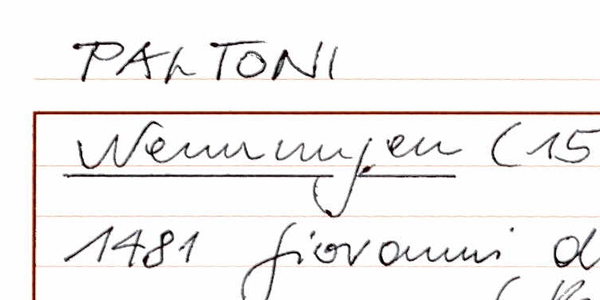 PALTONI
Nennungen (15
1481 Giovanni d